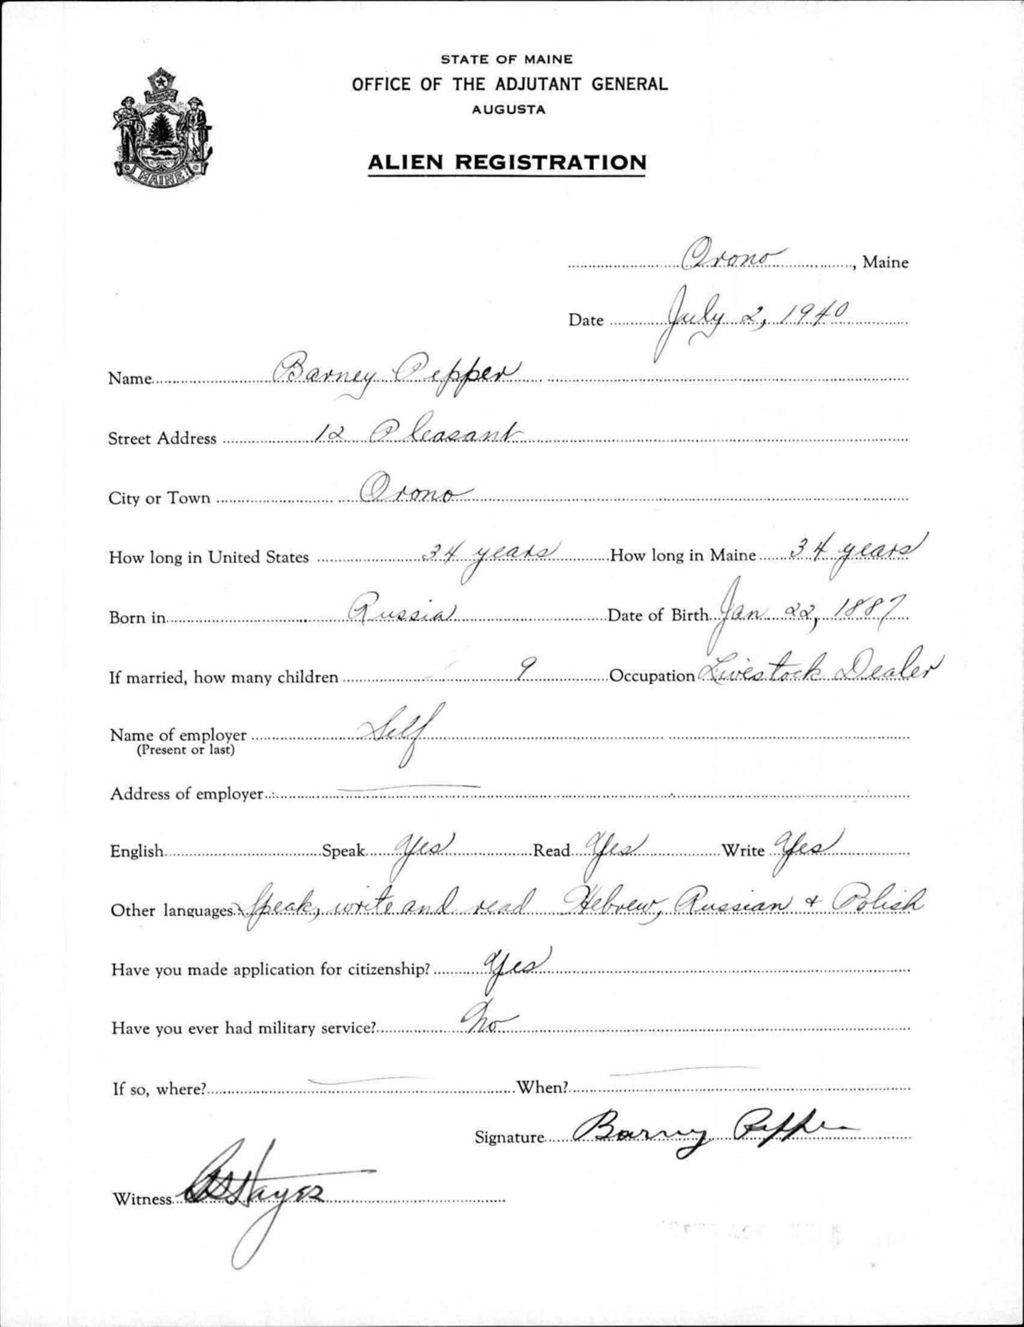 STATE OF MAINE
OFFICE OF THE ADJUTANT GENERAL
AUGUSTA
ALIEN REGISTRATION
MAINE
Orono, Maine
Date July 2, 1940
Name Barney Pepper
Street Address 12 Pleasant
City or Town Orono
How long in United States 34 years How long in Maine 34 years
Born in Russia Date of Birth Jan 22, 1887
If married, how many children 9 Occupation Livestock Dealer
Name of employer Self
(Present or last)
Address of employer
English Speak Yes Read Yes Write Yes
Other languages Speak, write and read Hebrew, Russian + Polish
Have you made application for citizenship? Yes
Have you ever had military service? No
If so, where? When?
Signature Barney Pepper
Witness Hayes